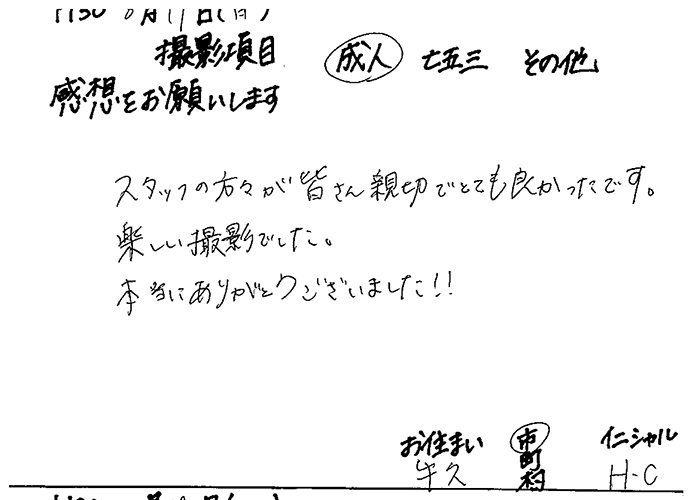 撮影項目 成人 七五三 その他
感想をお願いします
スタッフの方々が皆さん親切でとても良かったです。
楽しい撮影でした。
本当にありがとうございました!!
お住まい 市 イニシャル
町
牛久 村 H-C